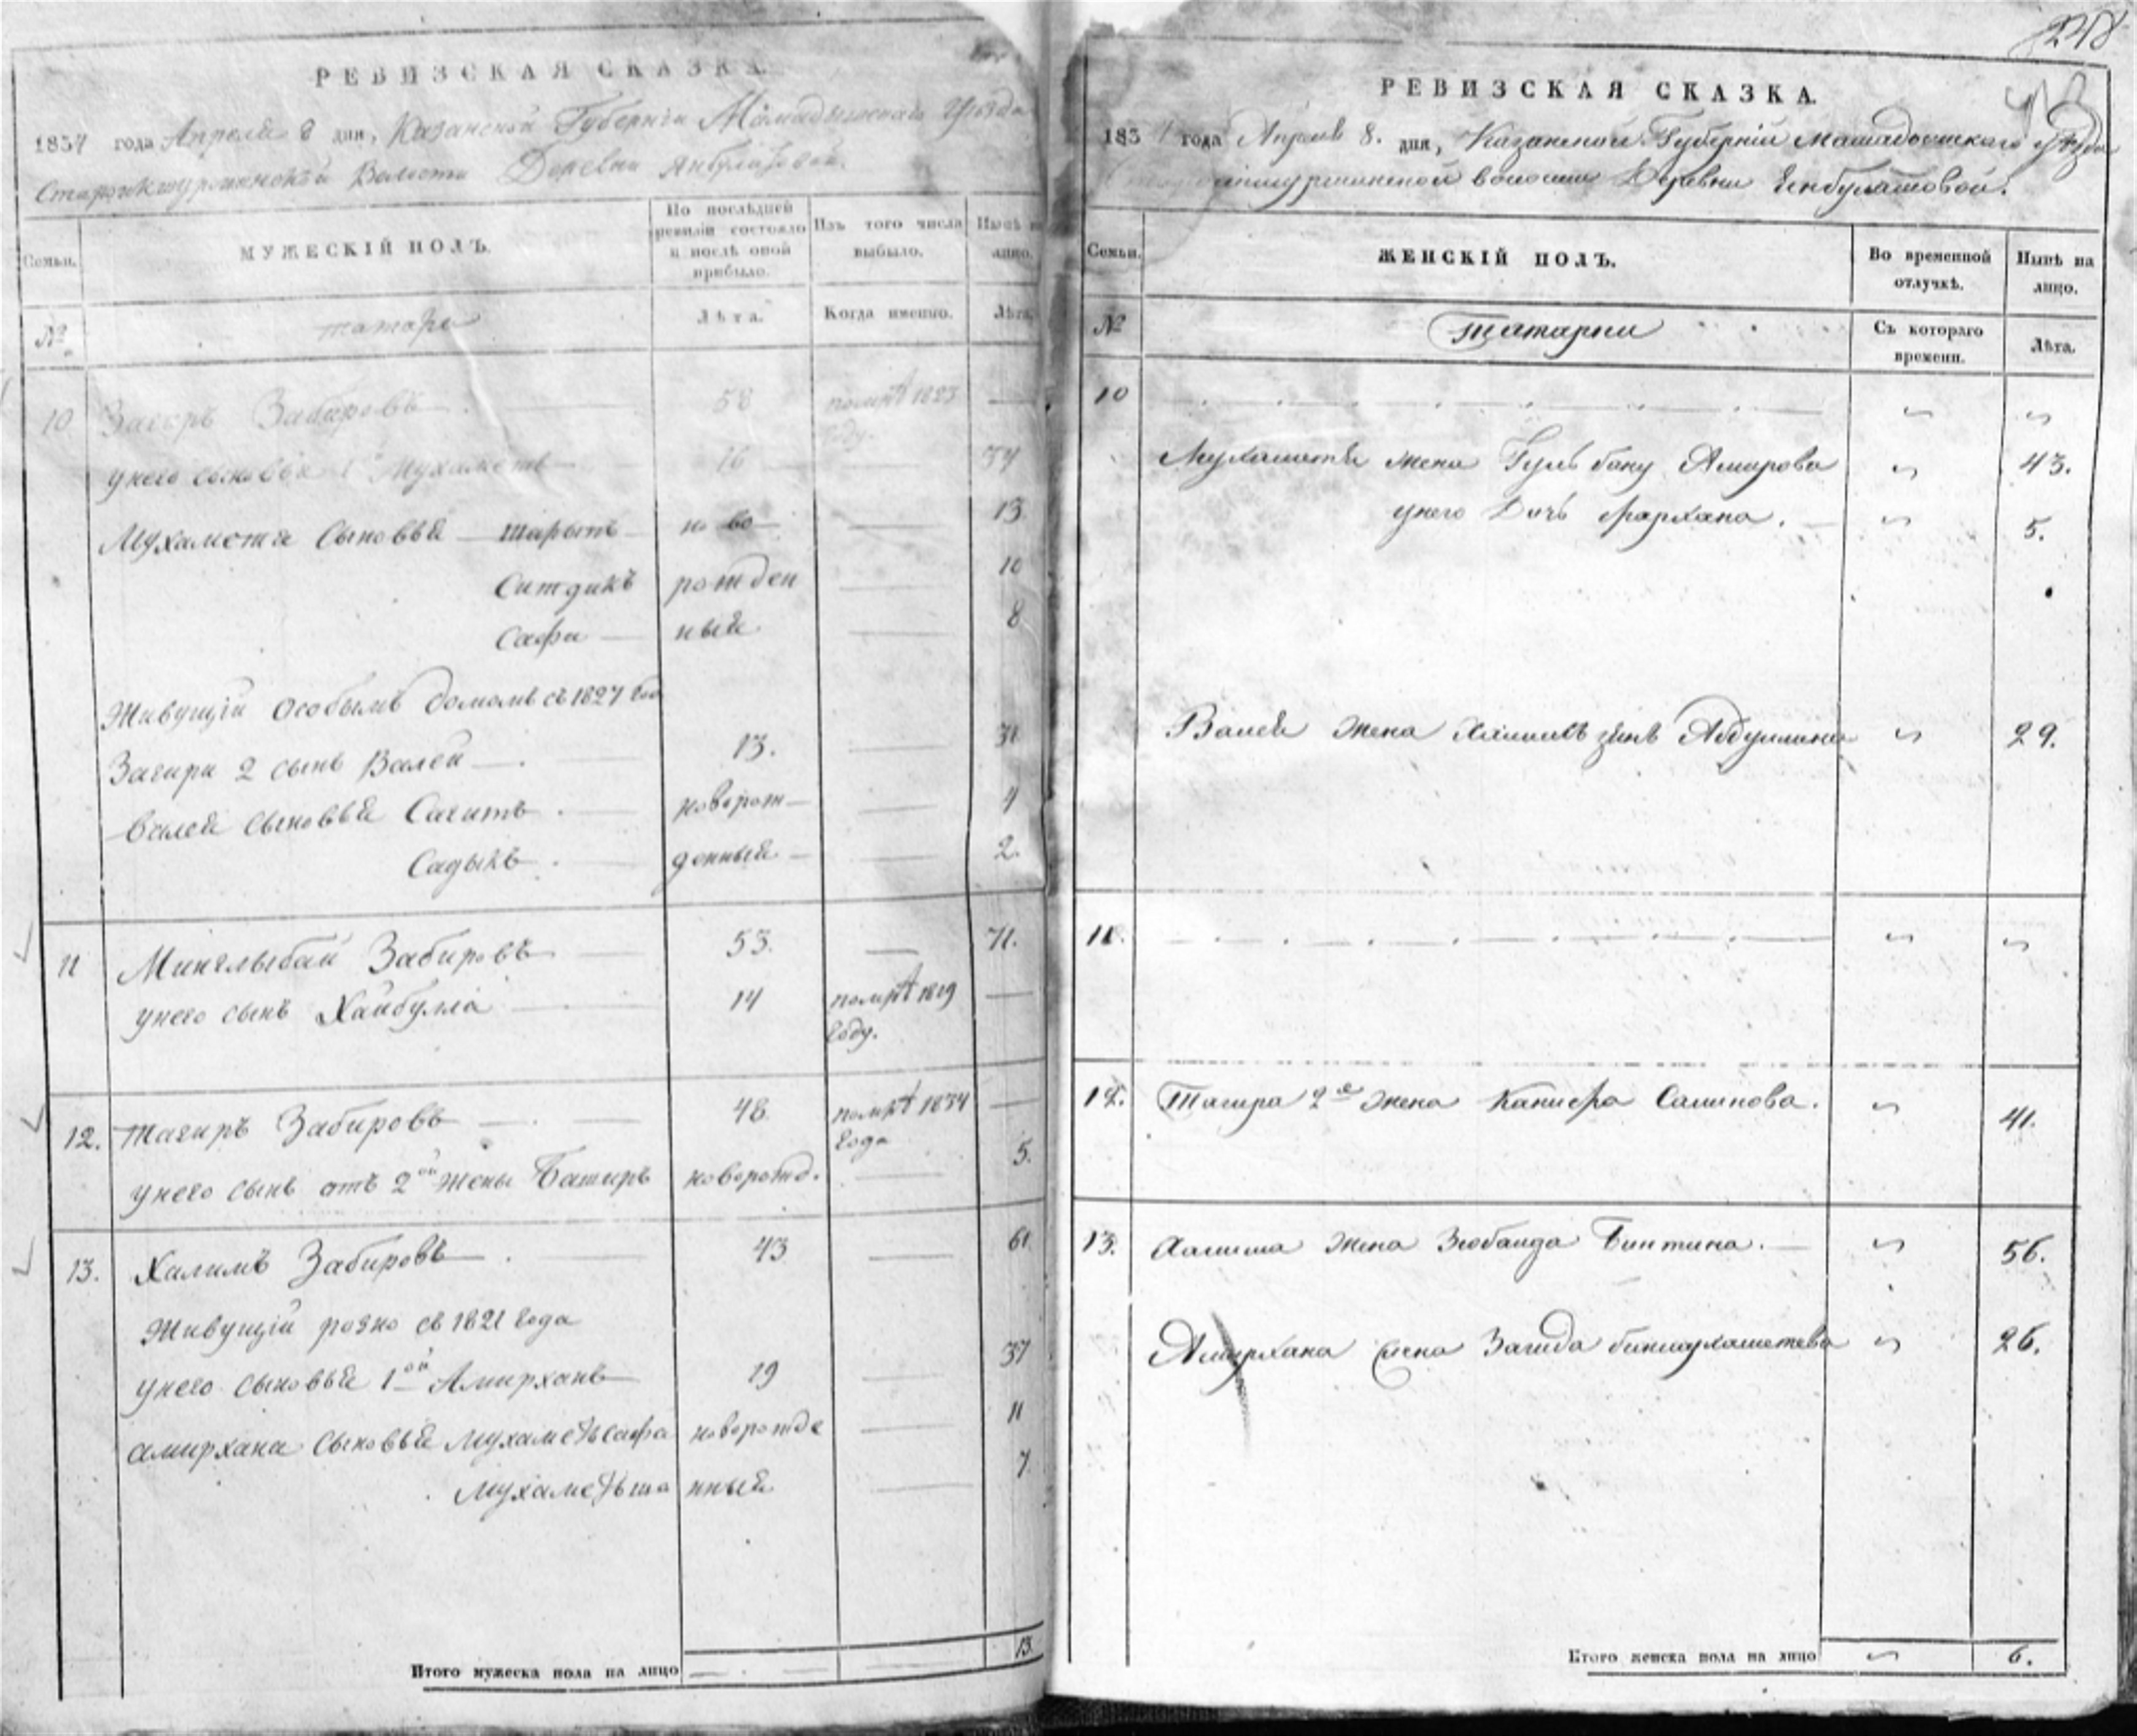 РЕВИЗСКАЯ СКАЗКА.
1834 года Апреля 8 дня, Казанской Губернiи Мамадышскаго Уѣзда
Волости Деревни Янбулатовой.
Семьи.
МУЖЕСКІЙ ПОЛЪ.
По послѣдней ревизіи состояло и послѣ оной прибыло.
Изъ того числа выбыло.
Нынѣ на лицо.
№
татары
Лѣта.
Когда именно.
Лѣта.
10 Загиръ Забировъ 58 помръ 1823 году.
у него сыновья 1й Мухаметъ 16 34
Мухаметя сыновья Шарыпъ ново 13
Ситдикъ рожден 10
Сафи ныя 8
Живущій особымъ домомъ съ 1827 года
Загири 2 сынъ Валей 13. 31
Валея сыновья Сагитъ новорож 4
Садыкъ денныя 2.
11 Минглыбай Забировъ 53. 71.
у него сынъ Хайбулла 14 помръ 1819 году.
12. Тагиръ Забировъ 48 помръ 1834 года
у него сынъ отъ 2ой жены Баширъ новорожд. 5.
13. Халимъ Забировъ 43 61
Живущій розно съ 1821 года
у него сыновья 1ой Амирханъ 19 37
Амирхана сыновья Мухаметьсафа новорожде 11
Мухаметьша нныя 7
Итого мужеска пола на лицо 13.
248
РЕВИЗСКАЯ СКАЗКА.
1834 года Апреля 8. дня, Казанской Губерніи Мамадышскаго уѣзда
волости Деревни Янбулатовой.
Семьи.
ЖЕНСКІЙ ПОЛЪ.
Во временной отлучкѣ.
Нынѣ на лицо.
№
Татарки
Съ котораго времени.
Лѣта.
10
Мухаметя жена Гульбану Амирова 43.
у него дочь Фархана. 5.
Валея жена Абдуллина 29.
11.
12. Тагира 2я жена Салимова. 41.
13. Халима жена Зюбаида Бинтина. 56.
Амирхана жена Загида бикмухаметева 26.
Итого женска пола на лицо 6.